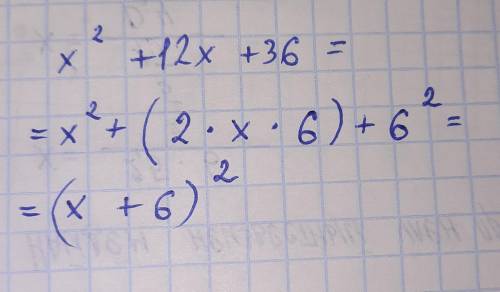 x² +12x +36 =
= x² + ( 2 · x · 6 ) + 6² =
= (x + 6)²